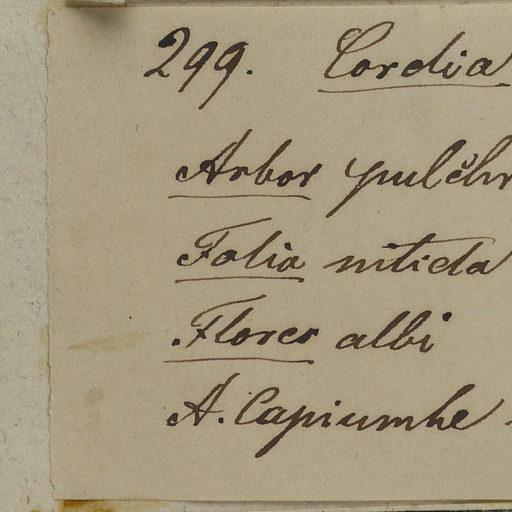 299. Cordia
Arbor pulchr
Folia nitida
Flores albi
A. Capiumhe